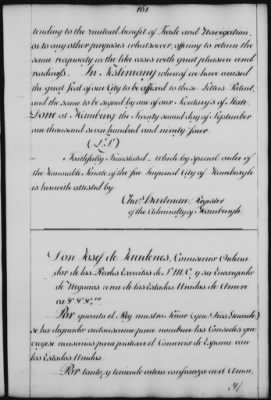 161
tending to the mutual benefit of Trade and Navigation,
or to any other purposes whatsoever, offering to return the
same reciprocity in the like cases with great pleasure and
readiness. In Testimony whereof we have caused
the great Seal of our City to be affixed to these Letters Patent,
and the same to be signed by one of our Secretarys of State
Done at Hamburg the Twenty second day of September
one thousand seven hundred and ninety four.
(L.S.)
Faithfully Translated _ which by special order of
the Honourable Senate of the free Imperial City of Hamburgh
is herewith attested by
Chas. Hartman, Register
of the Admiralty of Hamburgh.
Don Josef de Jaudenes, Comisario Ordena
dor de los Reales Exercitos de S.M.C. y su Encargado
de Negocios acerca de los Estados Unidos de Ameri
ca &a. &a. &a.
Por quanto el Rey nuestro Señor (que Dios Guarde)
se ha dignado autorisarme para nombrar los Consules que
para el Comercio de España con
los Estados Unidos.
Por tanto, y teniendo entera confianza en el